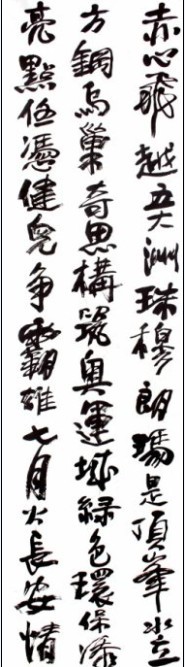 赤心飛越五大洲珠穆朗瑪是頂峯水立
方鋼鳥巢奇思構築奧運城綠色環保添
亮點任憑健兒争霸雄七月火長安情